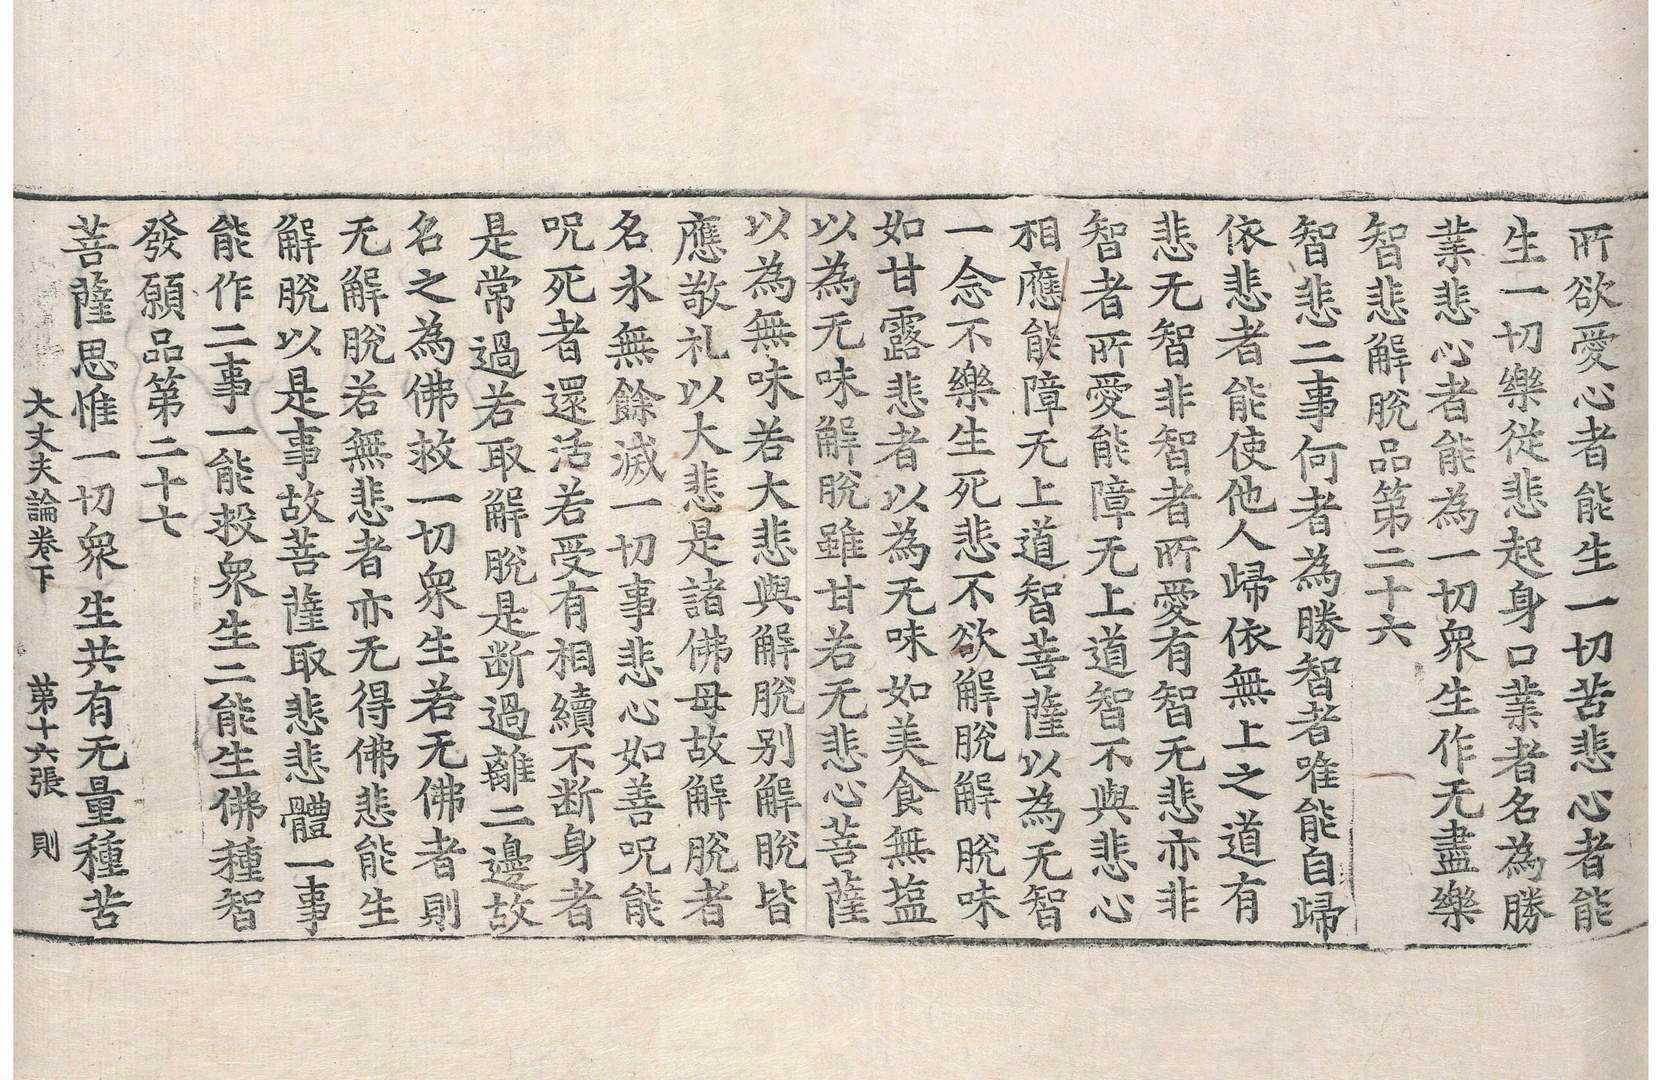 所欲愛心者能生一切苦悲心者能
生一切樂從悲起身口業者名為勝
業悲心者能為一切衆生作无盡樂
智悲解脫品第二十六
智悲二事何者為勝智者唯能自歸
依悲者能使他人歸依無上之道有
悲无智非智者所愛有智无悲亦非
智者所愛能障无上道智不與悲心
相應能障无上道智菩薩以為无智
一念不樂生死悲不欲解脫解脫味
如甘露悲者以為无味如美食無塩
以為无味解脫雖甘若无悲心菩薩
以為無味若大悲與解脫別解脫皆
應敬礼以大悲是諸佛母故解脫者
名永無餘滅一切事悲心如善呪能
呪死者還活若受有相續不断身者
是常過若取解脫是断過離二邊故
名之為佛救一切衆生若无佛者則
无解脫若無悲者亦无得佛悲能生
解脫以是事故菩薩取悲悲體一事
能作二事一能救衆生二能生佛種智
發願品第二十七
菩薩思惟一切衆生共有无量種苦
大丈夫論卷下 第十六張 則